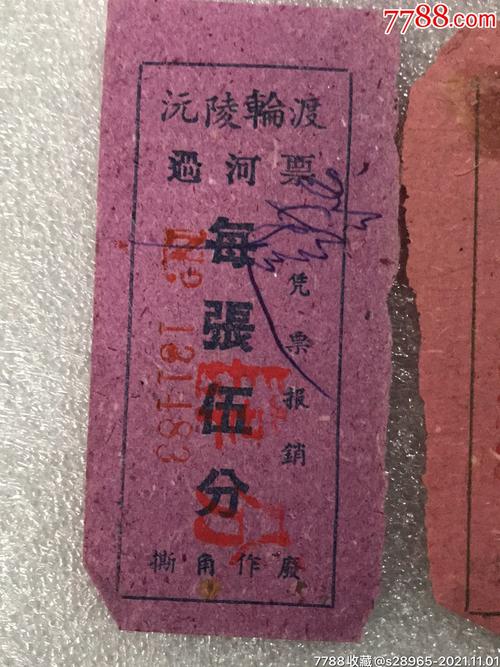 7788.com
沅陵輪渡
過河票
每張伍分
凭票报銷
撕角作廢
7788收藏@s28965-2021.11.01